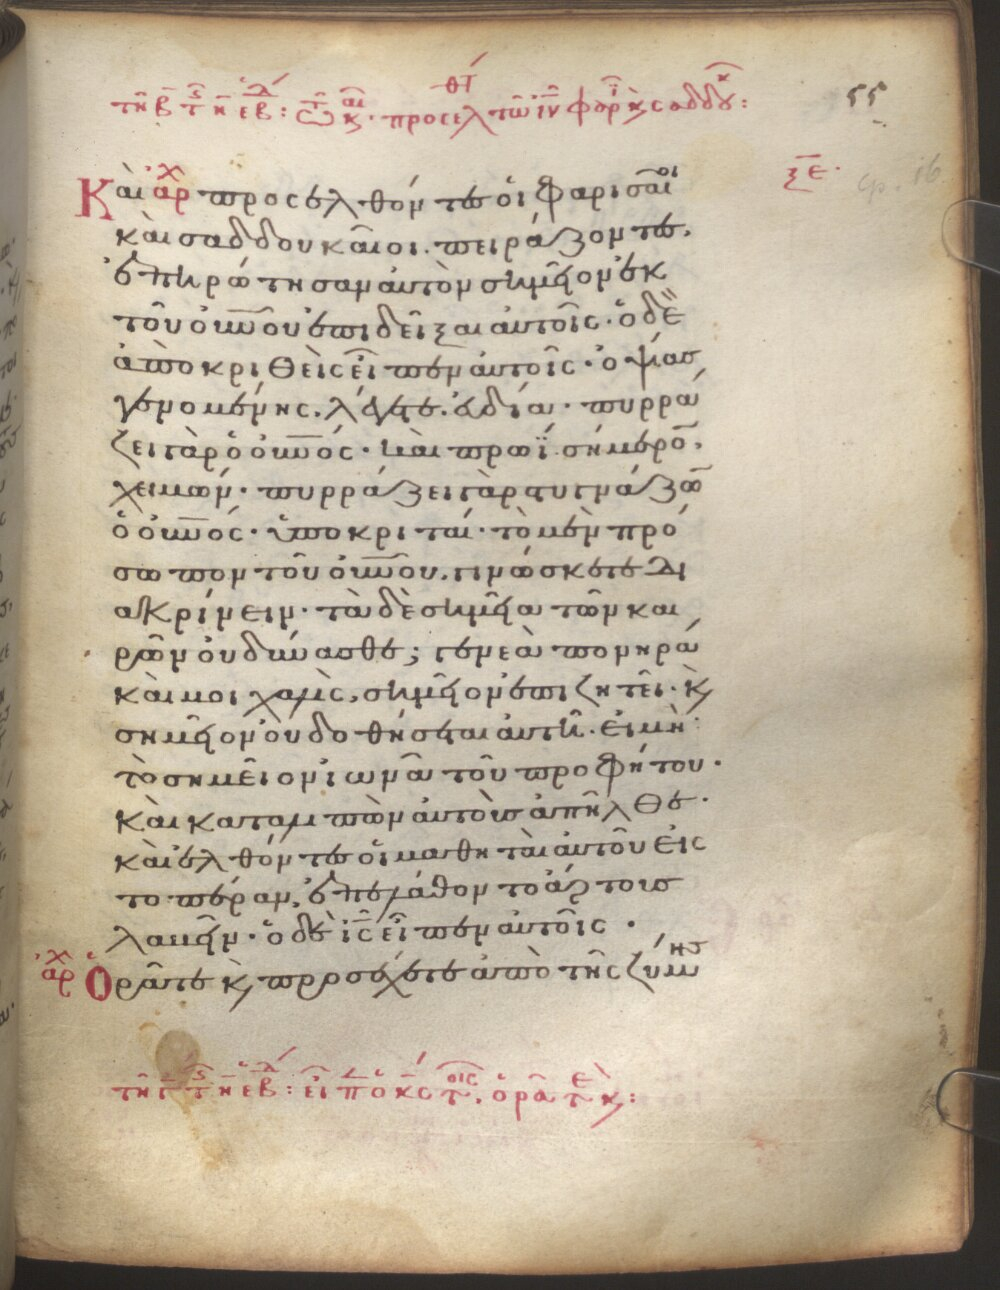 τῆ β τῆς ἑβδ: τῶ κ. προσελθ τῶ ιν φαρι κ σαδδουκ:
55
ξε.
cp. 16
Καὶ ἀρχ προσελθόντες οἱ Φαρισαῖοι
καὶ σαδδουκαῖοι. πειράζοντες,
ἐπηρώτησαν αὐτὸν σημεῖον ἐκ
τοῦ οὐνοῦ ἐπιδεῖξαι αὐτοῖς. ὁ δὲ
ἀποκριθεὶς εἶπεν αὐτοῖς. ὀψίας
γενομένης. λέγετε. εὐδία. πυρρά
ζει γὰρ ὁ οὐνος. καὶ πρωΐ. σήμερο̅.
χειμών. πυρράζει γὰρ στυγνάζω̅
ὁ οὐνός. ὑποκριταί. τὸ μὲν πρό
σωπον τοῦ οὐνοῦ. γινώσκετε δι
ακρίνειν. τὰ δὲ σημεῖα τῶν και
ρῶν οὐ δύνασθε; γενεὰ πονηρά
καὶ μοιχαλὶς, σημεῖον ἐπιζητεῖ. κ
σημεῖον οὐ δοθήσεται αὐτῆ. εἰ μὴ
τὸ σημεῖον ἰωνᾶ τοῦ προφήτου.
καὶ καταλιπὼν αὐτοὺς ἀπῆλθε.
καὶ ἐλθόντες οἱ μαθηταὶ αὐτοῦ εἰς
το πέραν, ἐπελάθοντο ἄρτους
λαβεῖν. ὁ δὲ ις εἶπεν αὐτοῖς.
ἀρχ Ὁρᾶτε κ προσέχετε ἀπὸ τῆς ζύμης
τῆ γ τῆς ἑβδ: εἶπ ὁ κς τοις. ὁρᾶτε κ: